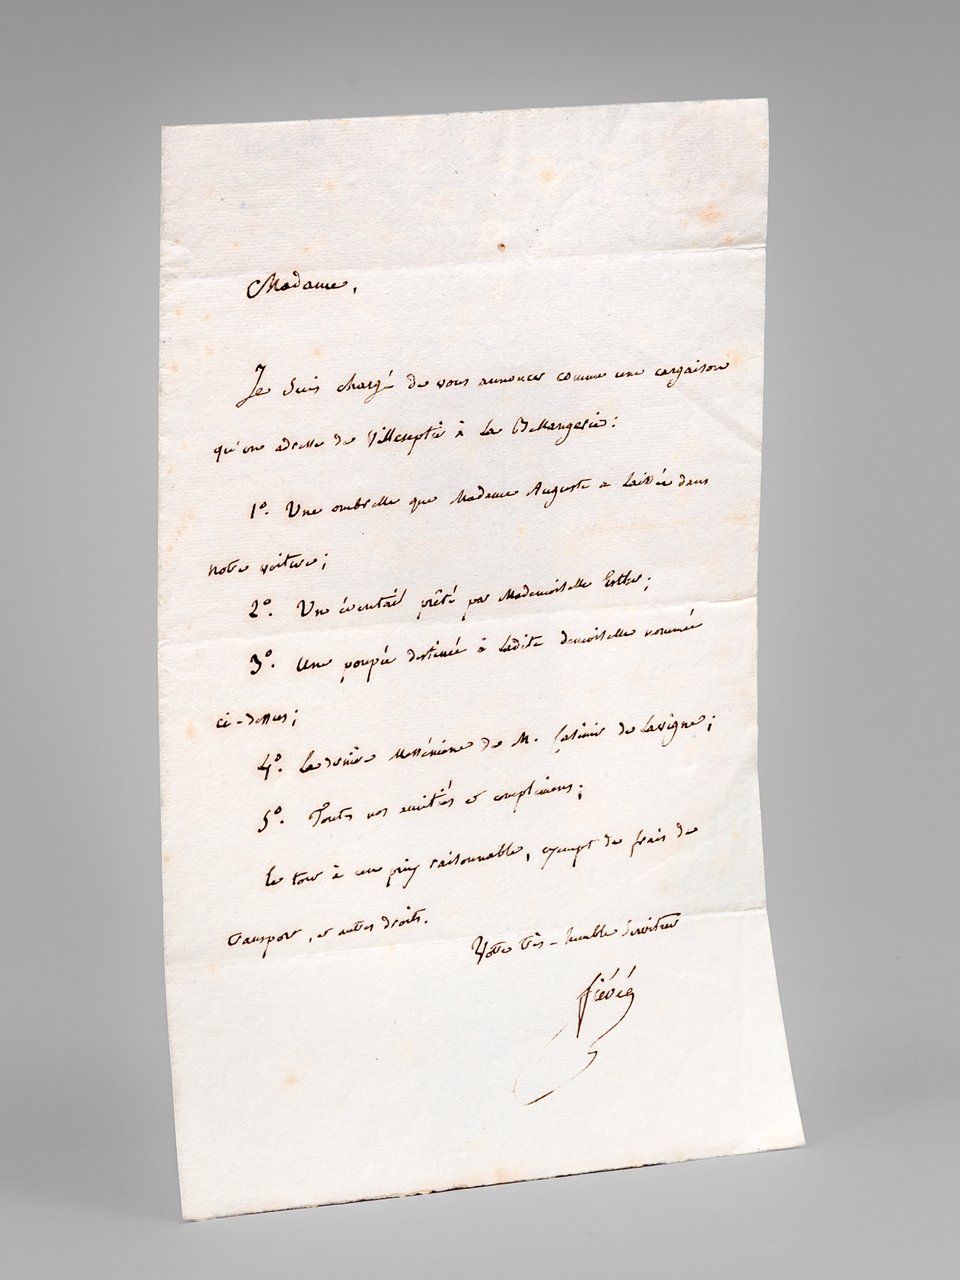 Madame,
Je suis chargé de vous annoncer comme une cargaison
qu'on adresse de Villeseptié à La Bellangerie:
1°. Une ombrelle que Madame Auguste a laissée dans
notre voiture;
2°. Un éventail prêté par Mademoiselle Esther;
3°. Une poupée destinée à Ladite demoiselle nommée
ci-dessus;
4°. La dernière Messénienne de M. Casimir de Lavigne;
5°. Toutes nos amitiés et complimens;
Le tout à un prix raisonnable, exempt de frais de
transport, et autres droits.
Votre très-humble Serviteur
fiévée